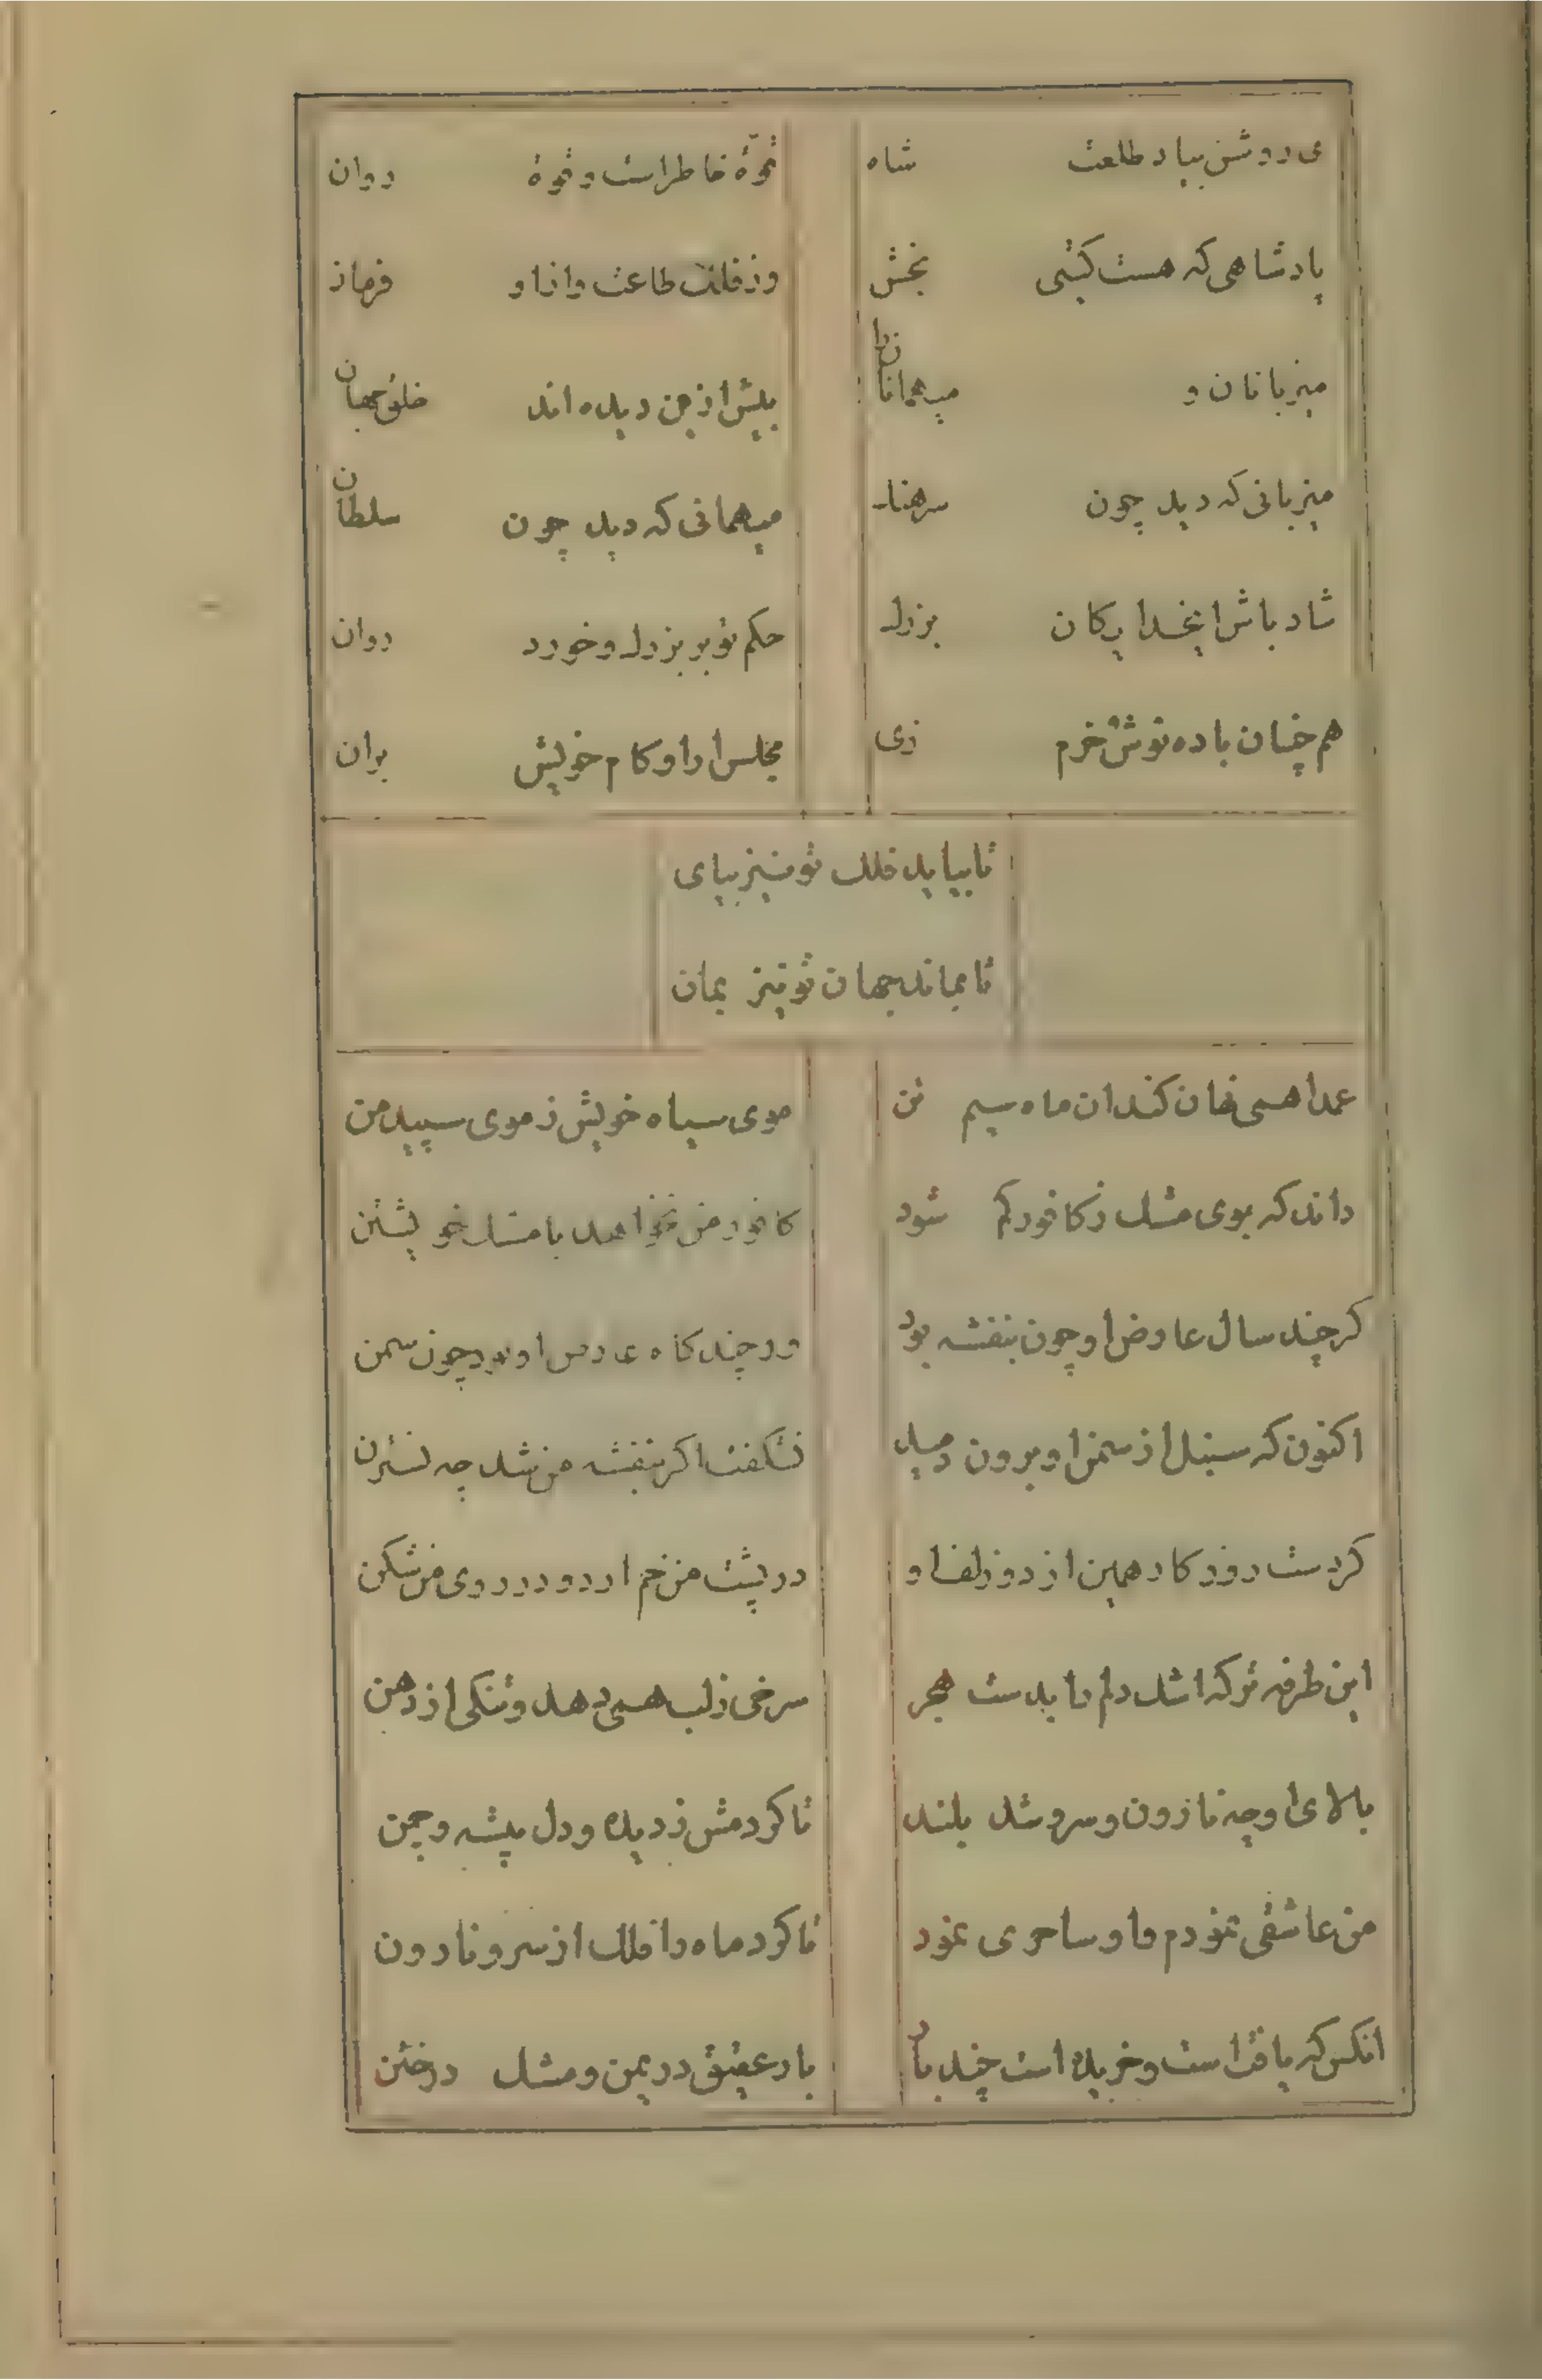 می روشن بیاد طلعت شاه
قوّة خاطرأست و قوة روان
پادشاهی که هست کیتی بخش
وز فلک طاعت و ازاو فرمان
میزبانان و میهمانانرا
پیش ازین دیده اند خلق جهان
میزبانی که دید چون سرهنک
میهمانی که دید چون سلطان
شاد باش ایخدایکان بزرك
حکم تو بر بزرك و خورد روان
هم چنان باده نوش و خرم زی
مجلس ارا و کام خویش بران
تا بپاید فلك تو نیز بپای
تا بماند جهان تو نیز بمان
عمدا همی نهان کند ان ماه سیم تن
موی سیاه خویش ز موی سپید من
داند که بوی مشك ز کافور کم شود
کافور من نخواهد با مشك خویشتن
کر چند سال عارض او چون بنفشه بود
ور چند کاه عارض او بود چون سمن
اکنون که سنبل از سمن او برون دمید
نشکفت اکر بنفشه من شد چه نسترن
کردست روزکار همین از دو زلف او
در پشت من خم ارد و در روی من شکن
این طرفه ترکه اشك دلم را بدست هجر
سرخی ز لب همی دهد و تنکی از دهن
بالای او چه نارون و سرو شد بلند
تا کردمش ز دیده و دل پیشه و چمن
من عاشقی نمودم و او ساحری نمود
تا کرد ماه را فلك از سرو نارون
انکس که یافت است و خریده است چند بار
بار عقیق در یمن و مشك در ختن